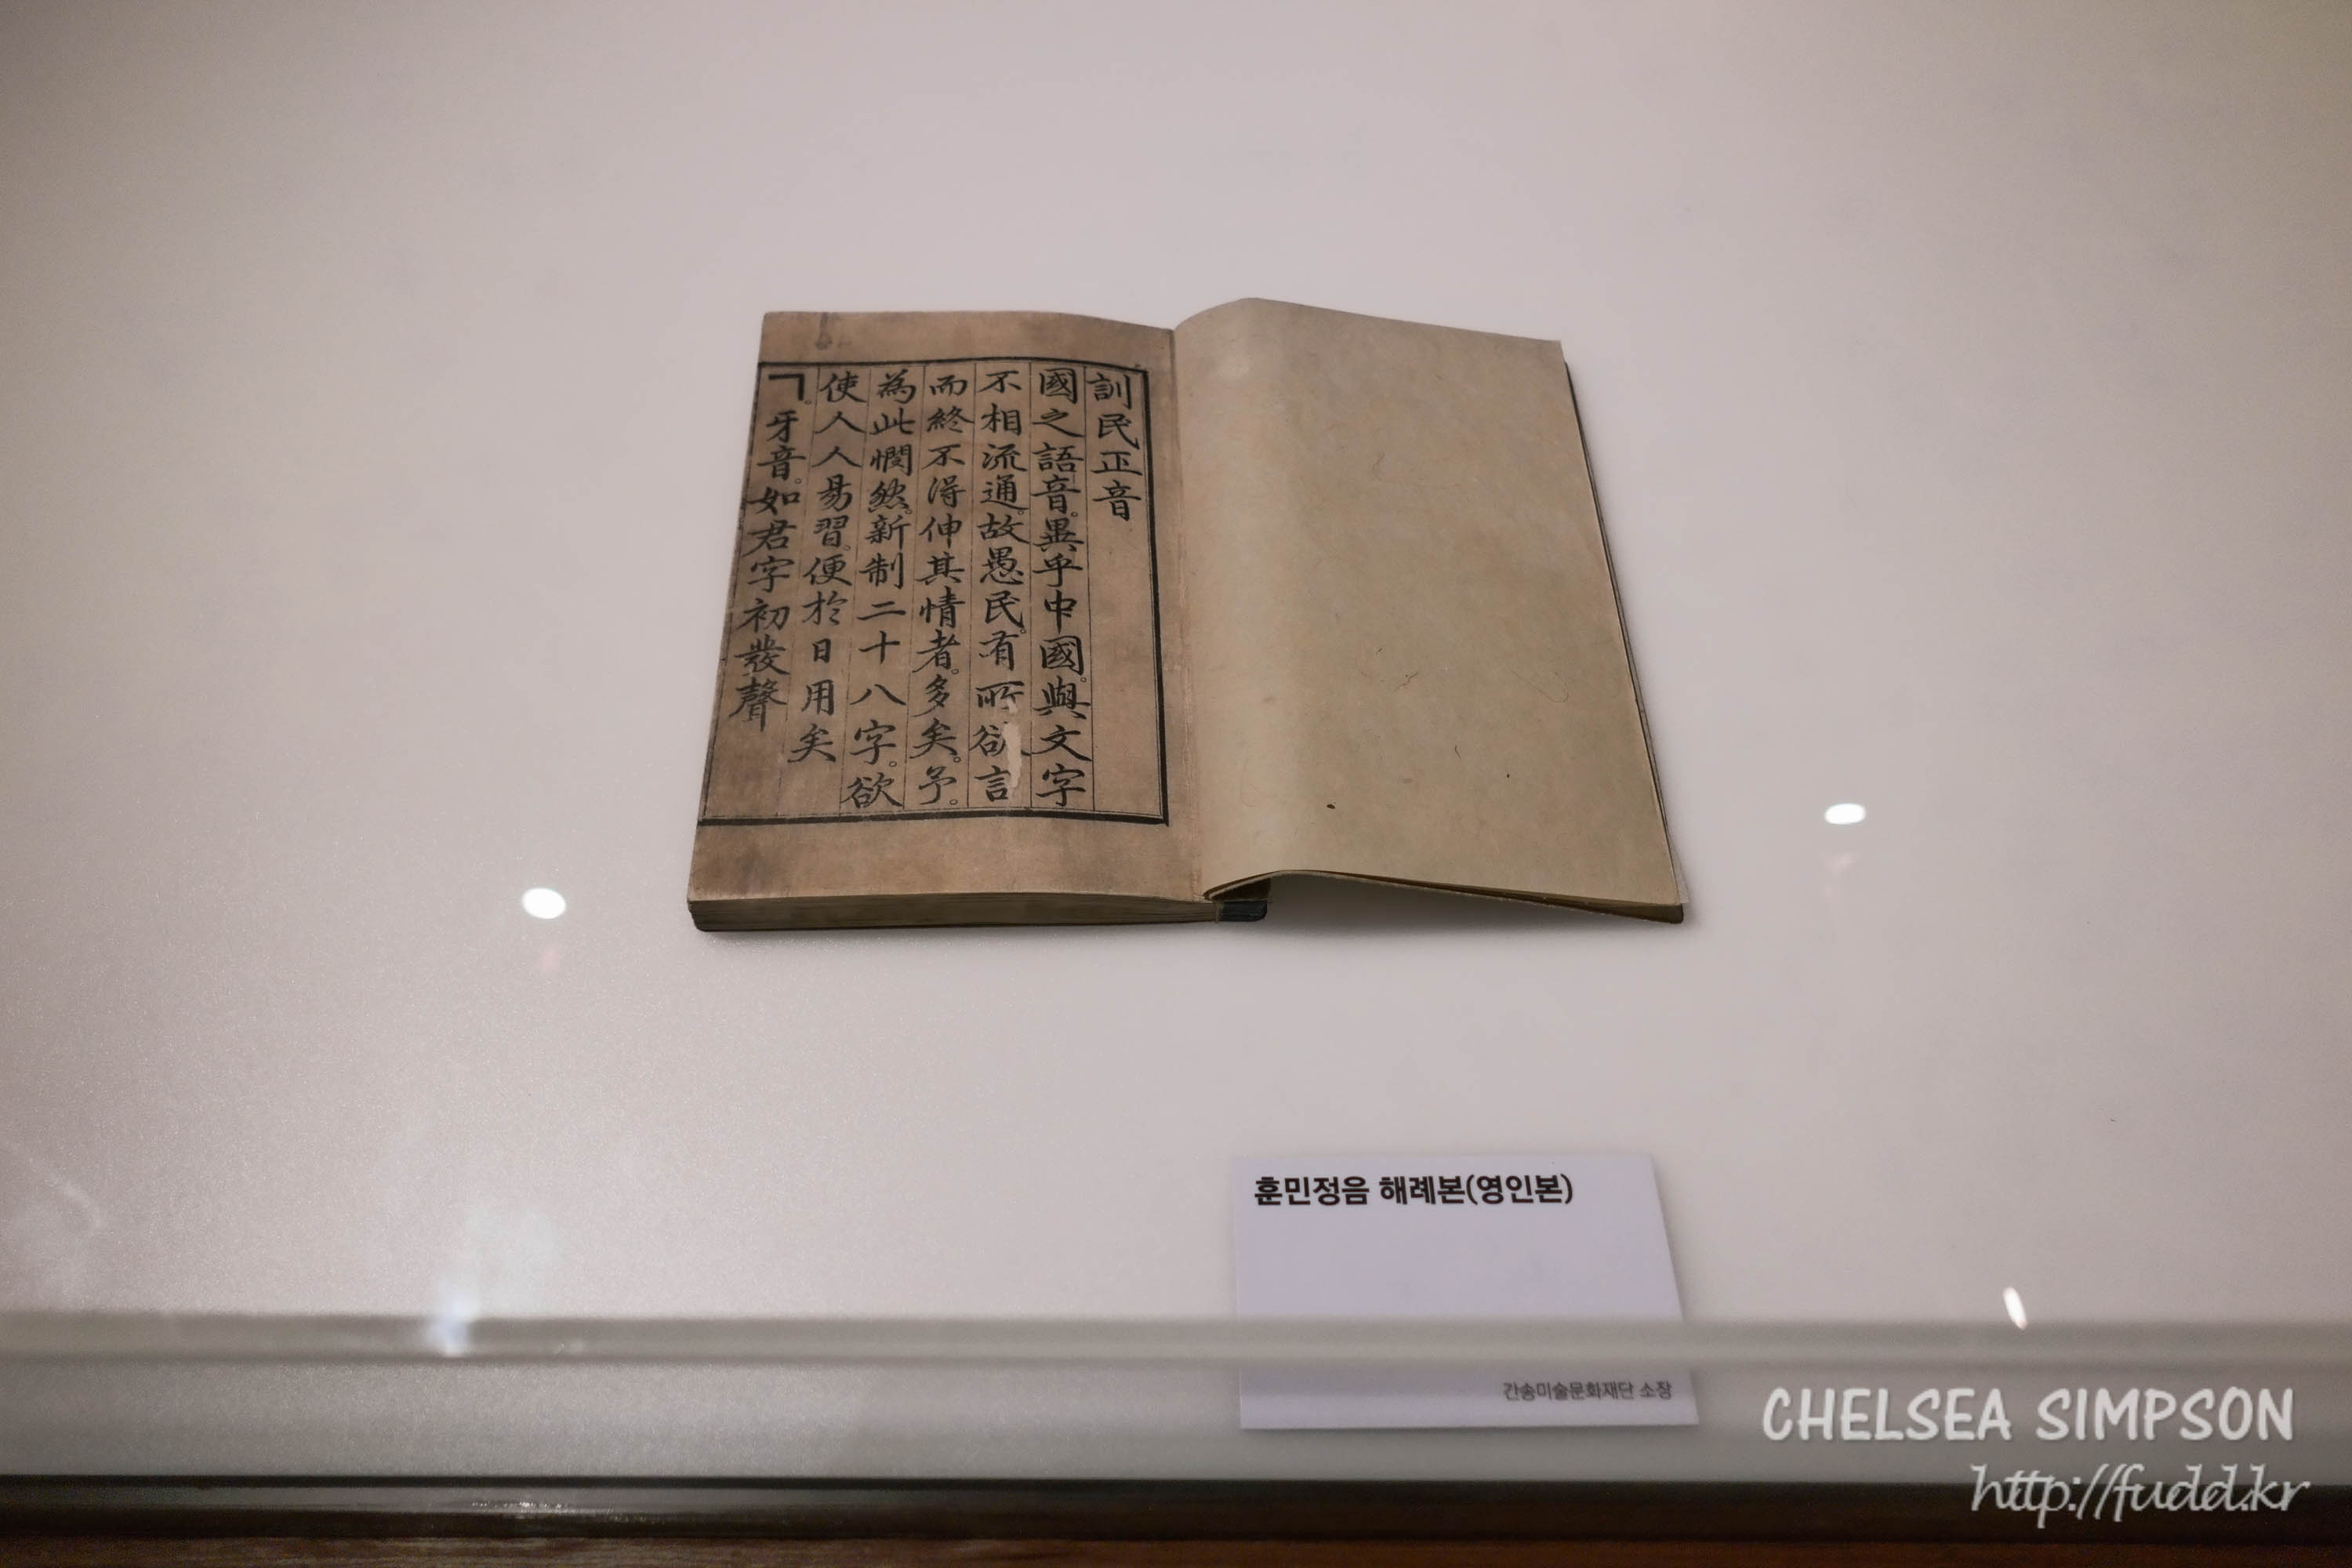 訓民正音
國之語音。異乎中國。與文字
不相流通。故愚民。有所欲言
而終不得伸其情者。多矣。予。
為此憫然。新制二十八字。欲
使人人易習。便於日用矣
ㄱ。牙音。如君字初發聲
훈민정음 해례본(영인본)
간송미술문화재단 소장
CHELSEA SIMPSON
http://fudd.kr